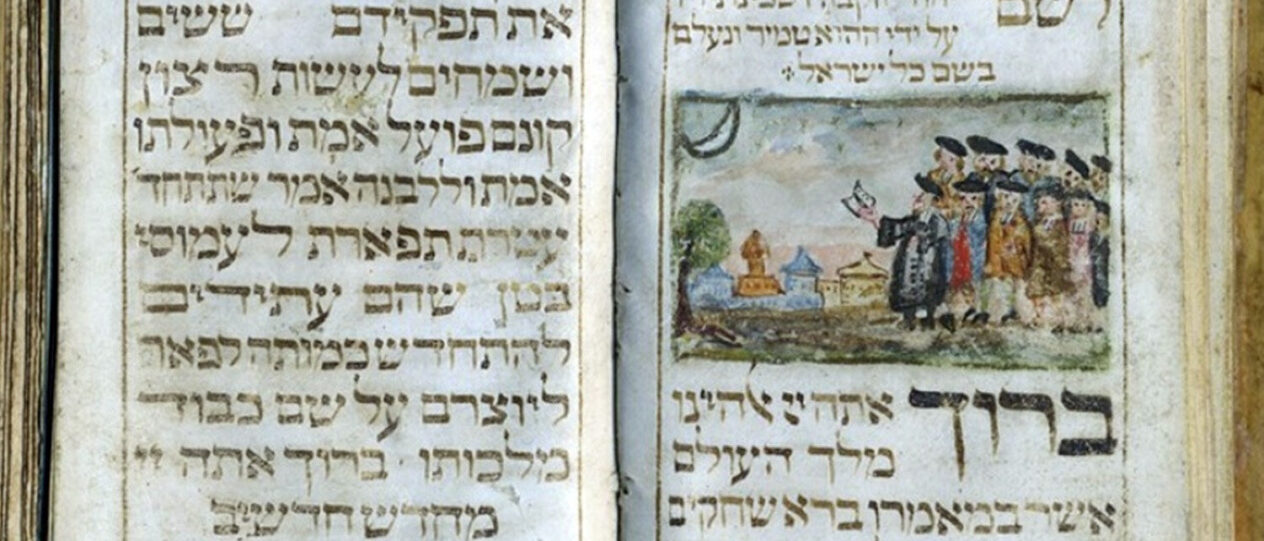 לשם
על ידי ההוא טמיר ונעלם
בשם כל ישראל
ברוך אתה יי אלהינו
מלך העולם
אשר במאמרו ברא שחקים
את תפקידם ששים
ושמחים לעשות רצון
קונם פועל אמת ופעולתו
אמת וללבנה אמר שתתחד
עטרת תפארת לעמוסי
בטן שהם עתידים
להתחדש כמותה לפאר
ליוצרם על שם כבוד
מלכותו · ברוך אתה יי
מחדש חדשים